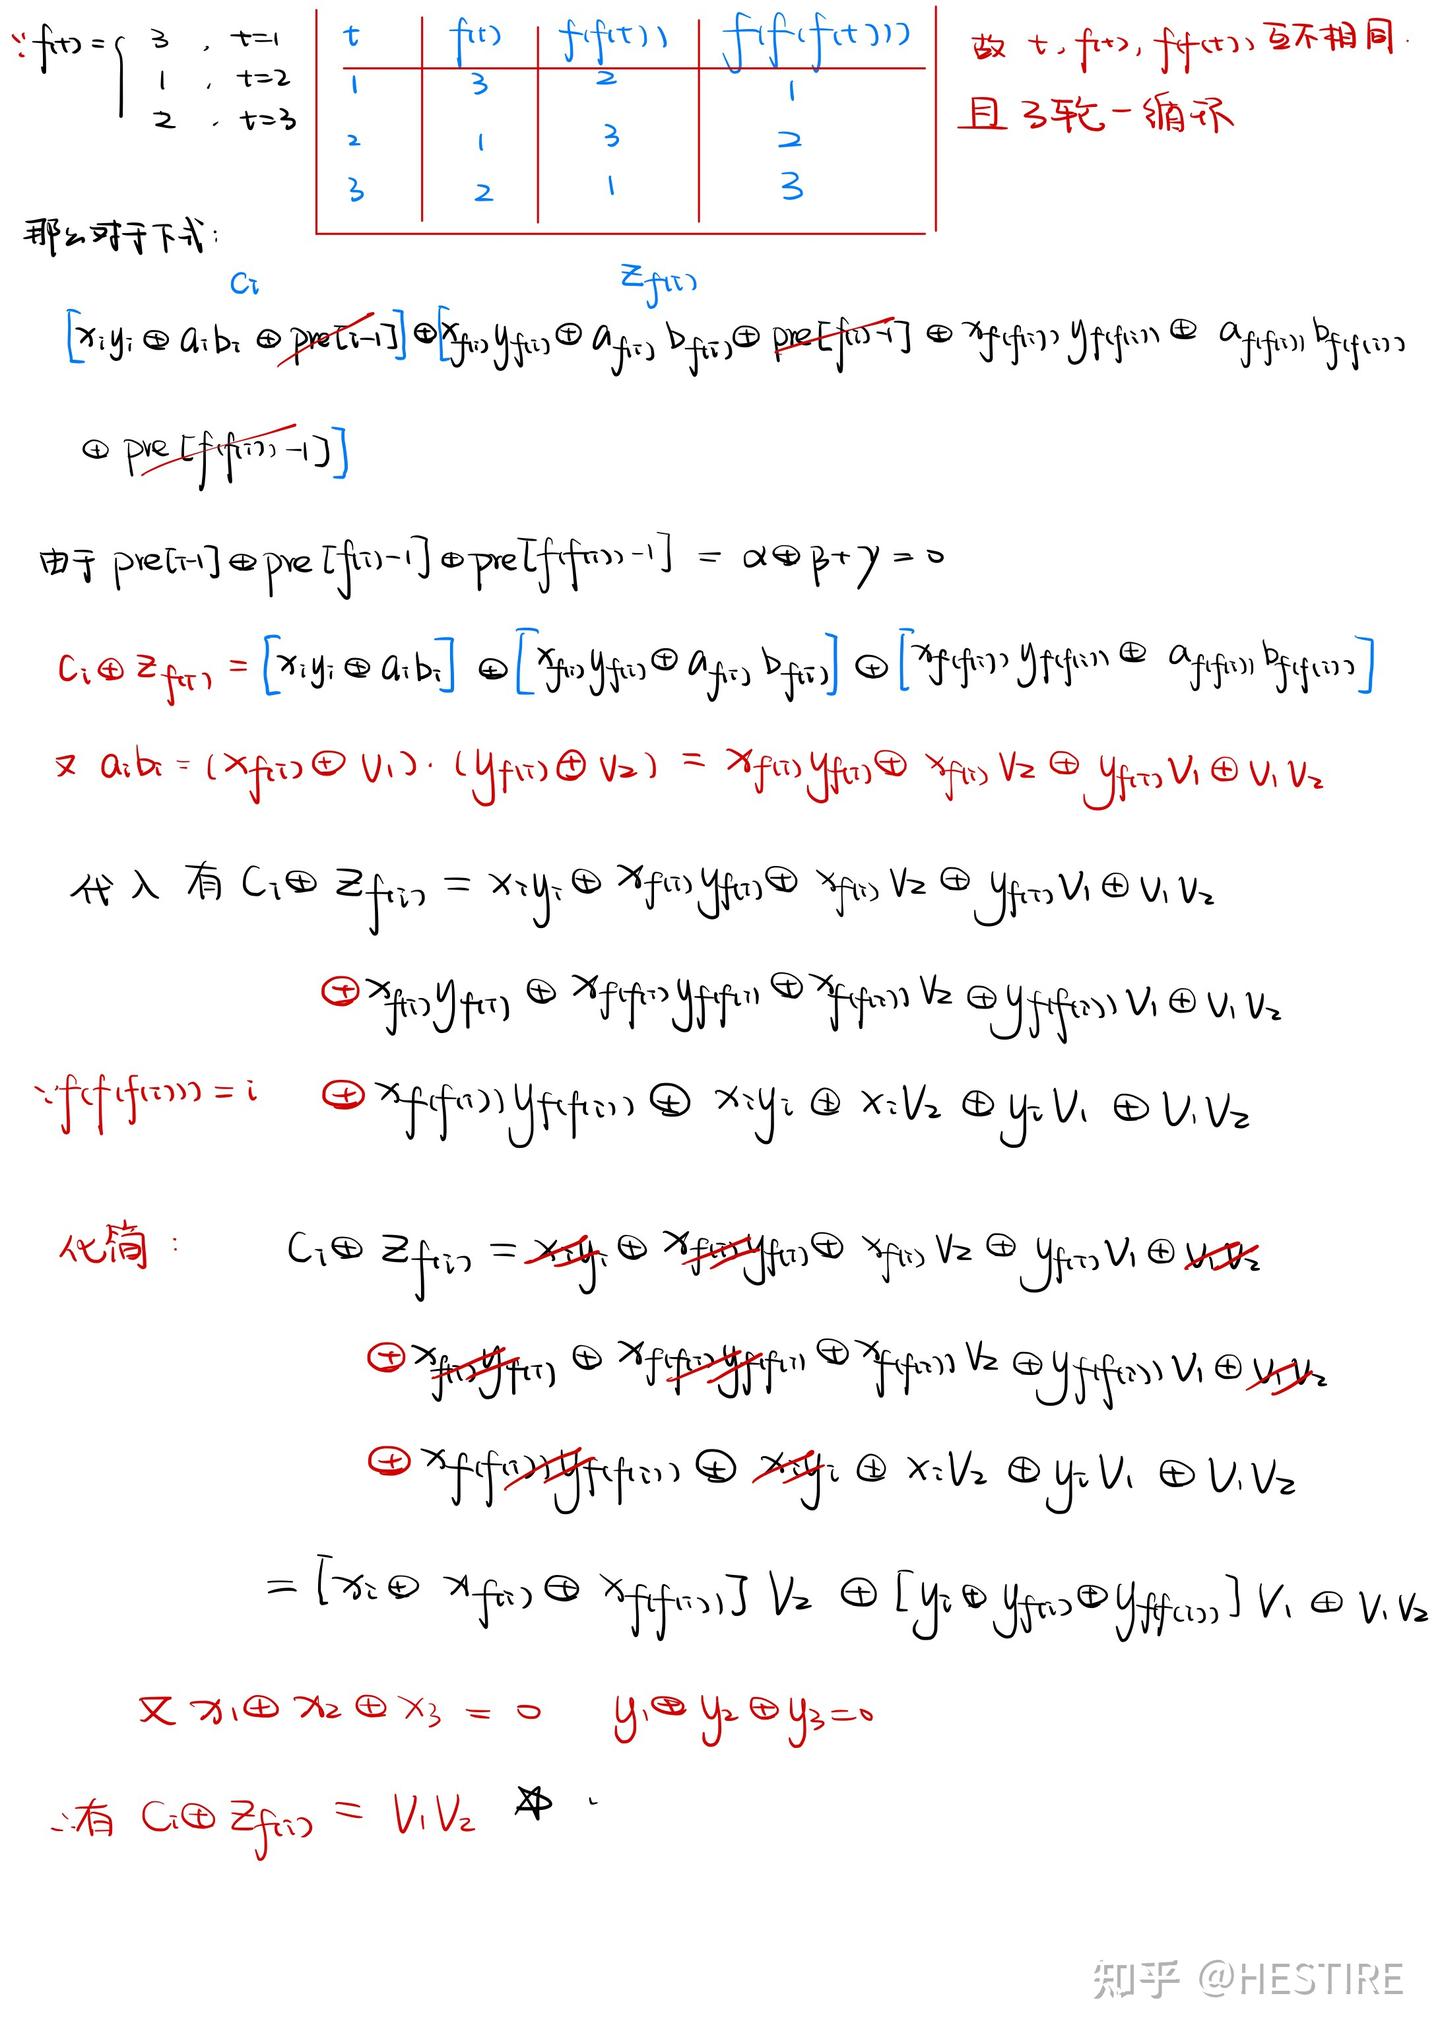 ∵ f(t) = { 3 , t=1
1 , t=2
2 , t=3
t f(t) f(f(t)) f(f(f(t)))
1 3 2 1
2 1 3 2
3 2 1 3
故 t, f(t), f(f(t)) 互不相同.
且 3轮一循环
那么对于下式:
C_i Z_f(i)
[x_i y_i ⊕ a_i b_i ⊕ pre[i-1]] ⊕ [x_f(i) y_f(i) ⊕ a_f(i) b_f(i) ⊕ pre[f(i)-1] ⊕ x_f(f(i)) y_f(f(i)) ⊕ a_f(f(i)) b_f(f(i))
⊕ pre[f(f(i))-1]]
由于 pre[i-1] ⊕ pre[f(i)-1] ⊕ pre[f(f(i))-1] = α ⊕ β + γ = 0
C_i ⊕ Z_f(i) = [x_i y_i ⊕ a_i b_i] ⊕ [x_f(i) y_f(i) ⊕ a_f(i) b_f(i)] ⊕ [x_f(f(i)) y_f(f(i)) ⊕ a_f(f(i)) b_f(f(i))]
又 a_i b_i = (x_f(i) ⊕ V_1) · (y_f(i) ⊕ V_2) = x_f(i) y_f(i) ⊕ x_f(i) V_2 ⊕ y_f(i) V_1 ⊕ V_1 V_2
代入 有 C_i ⊕ Z_f(i) = x_i y_i ⊕ x_f(i) y_f(i) ⊕ x_f(i) V_2 ⊕ y_f(i) V_1 ⊕ V_1 V_2
⊕ x_f(i) y_f(i) ⊕ x_f(f(i)) y_f(f(i)) ⊕ x_f(f(i)) V_2 ⊕ y_f(f(i)) V_1 ⊕ V_1 V_2
∵ f(f(f(i))) = i ⊕ x_f(f(i)) y_f(f(i)) ⊕ x_i y_i ⊕ x_i V_2 ⊕ y_i V_1 ⊕ V_1 V_2
化简: C_i ⊕ Z_f(i) = x_i y_i ⊕ x_f(i) y_f(i) ⊕ x_f(i) V_2 ⊕ y_f(i) V_1 ⊕ V_1 V_2
⊕ x_f(i) y_f(i) ⊕ x_f(f(i)) y_f(f(i)) ⊕ x_f(f(i)) V_2 ⊕ y_f(f(i)) V_1 ⊕ V_1 V_2
⊕ x_f(f(i)) y_f(f(i)) ⊕ x_i y_i ⊕ x_i V_2 ⊕ y_i V_1 ⊕ V_1 V_2
= [x_i ⊕ x_f(i) ⊕ x_f(f(i))] V_2 ⊕ [y_i ⊕ y_f(i) ⊕ y_f(f(i))] V_1 ⊕ V_1 V_2
又 x_1 ⊕ x_2 ⊕ x_3 = 0 y_1 ⊕ y_2 ⊕ y_3 = 0
∴ 有 C_i ⊕ Z_f(i) = V_1 V_2 ☆ .
知乎 @HESTIRE